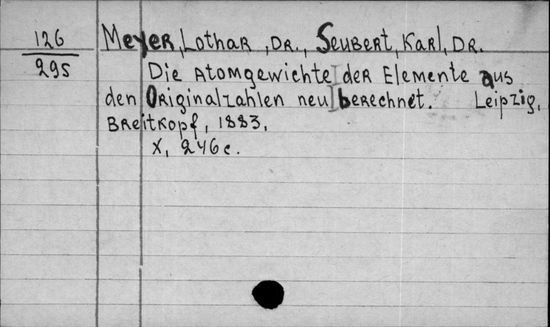 126
295
Meyer, Lothar, Dr., Seubert, Karl, Dr.
Die Atomgewichte der Elemente aus
den Originalzahlen neu berechnet. Leipzig,
Breitkopf, 1883.
X, 246 c.